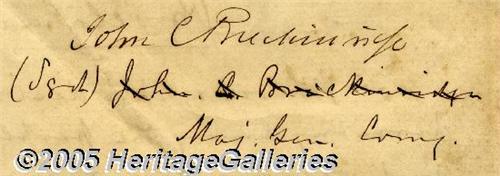 John C Breckinridge
(Sgd) John. C. Breckinridge
Maj. Gen. Comg.
©2005 HeritageGalleries